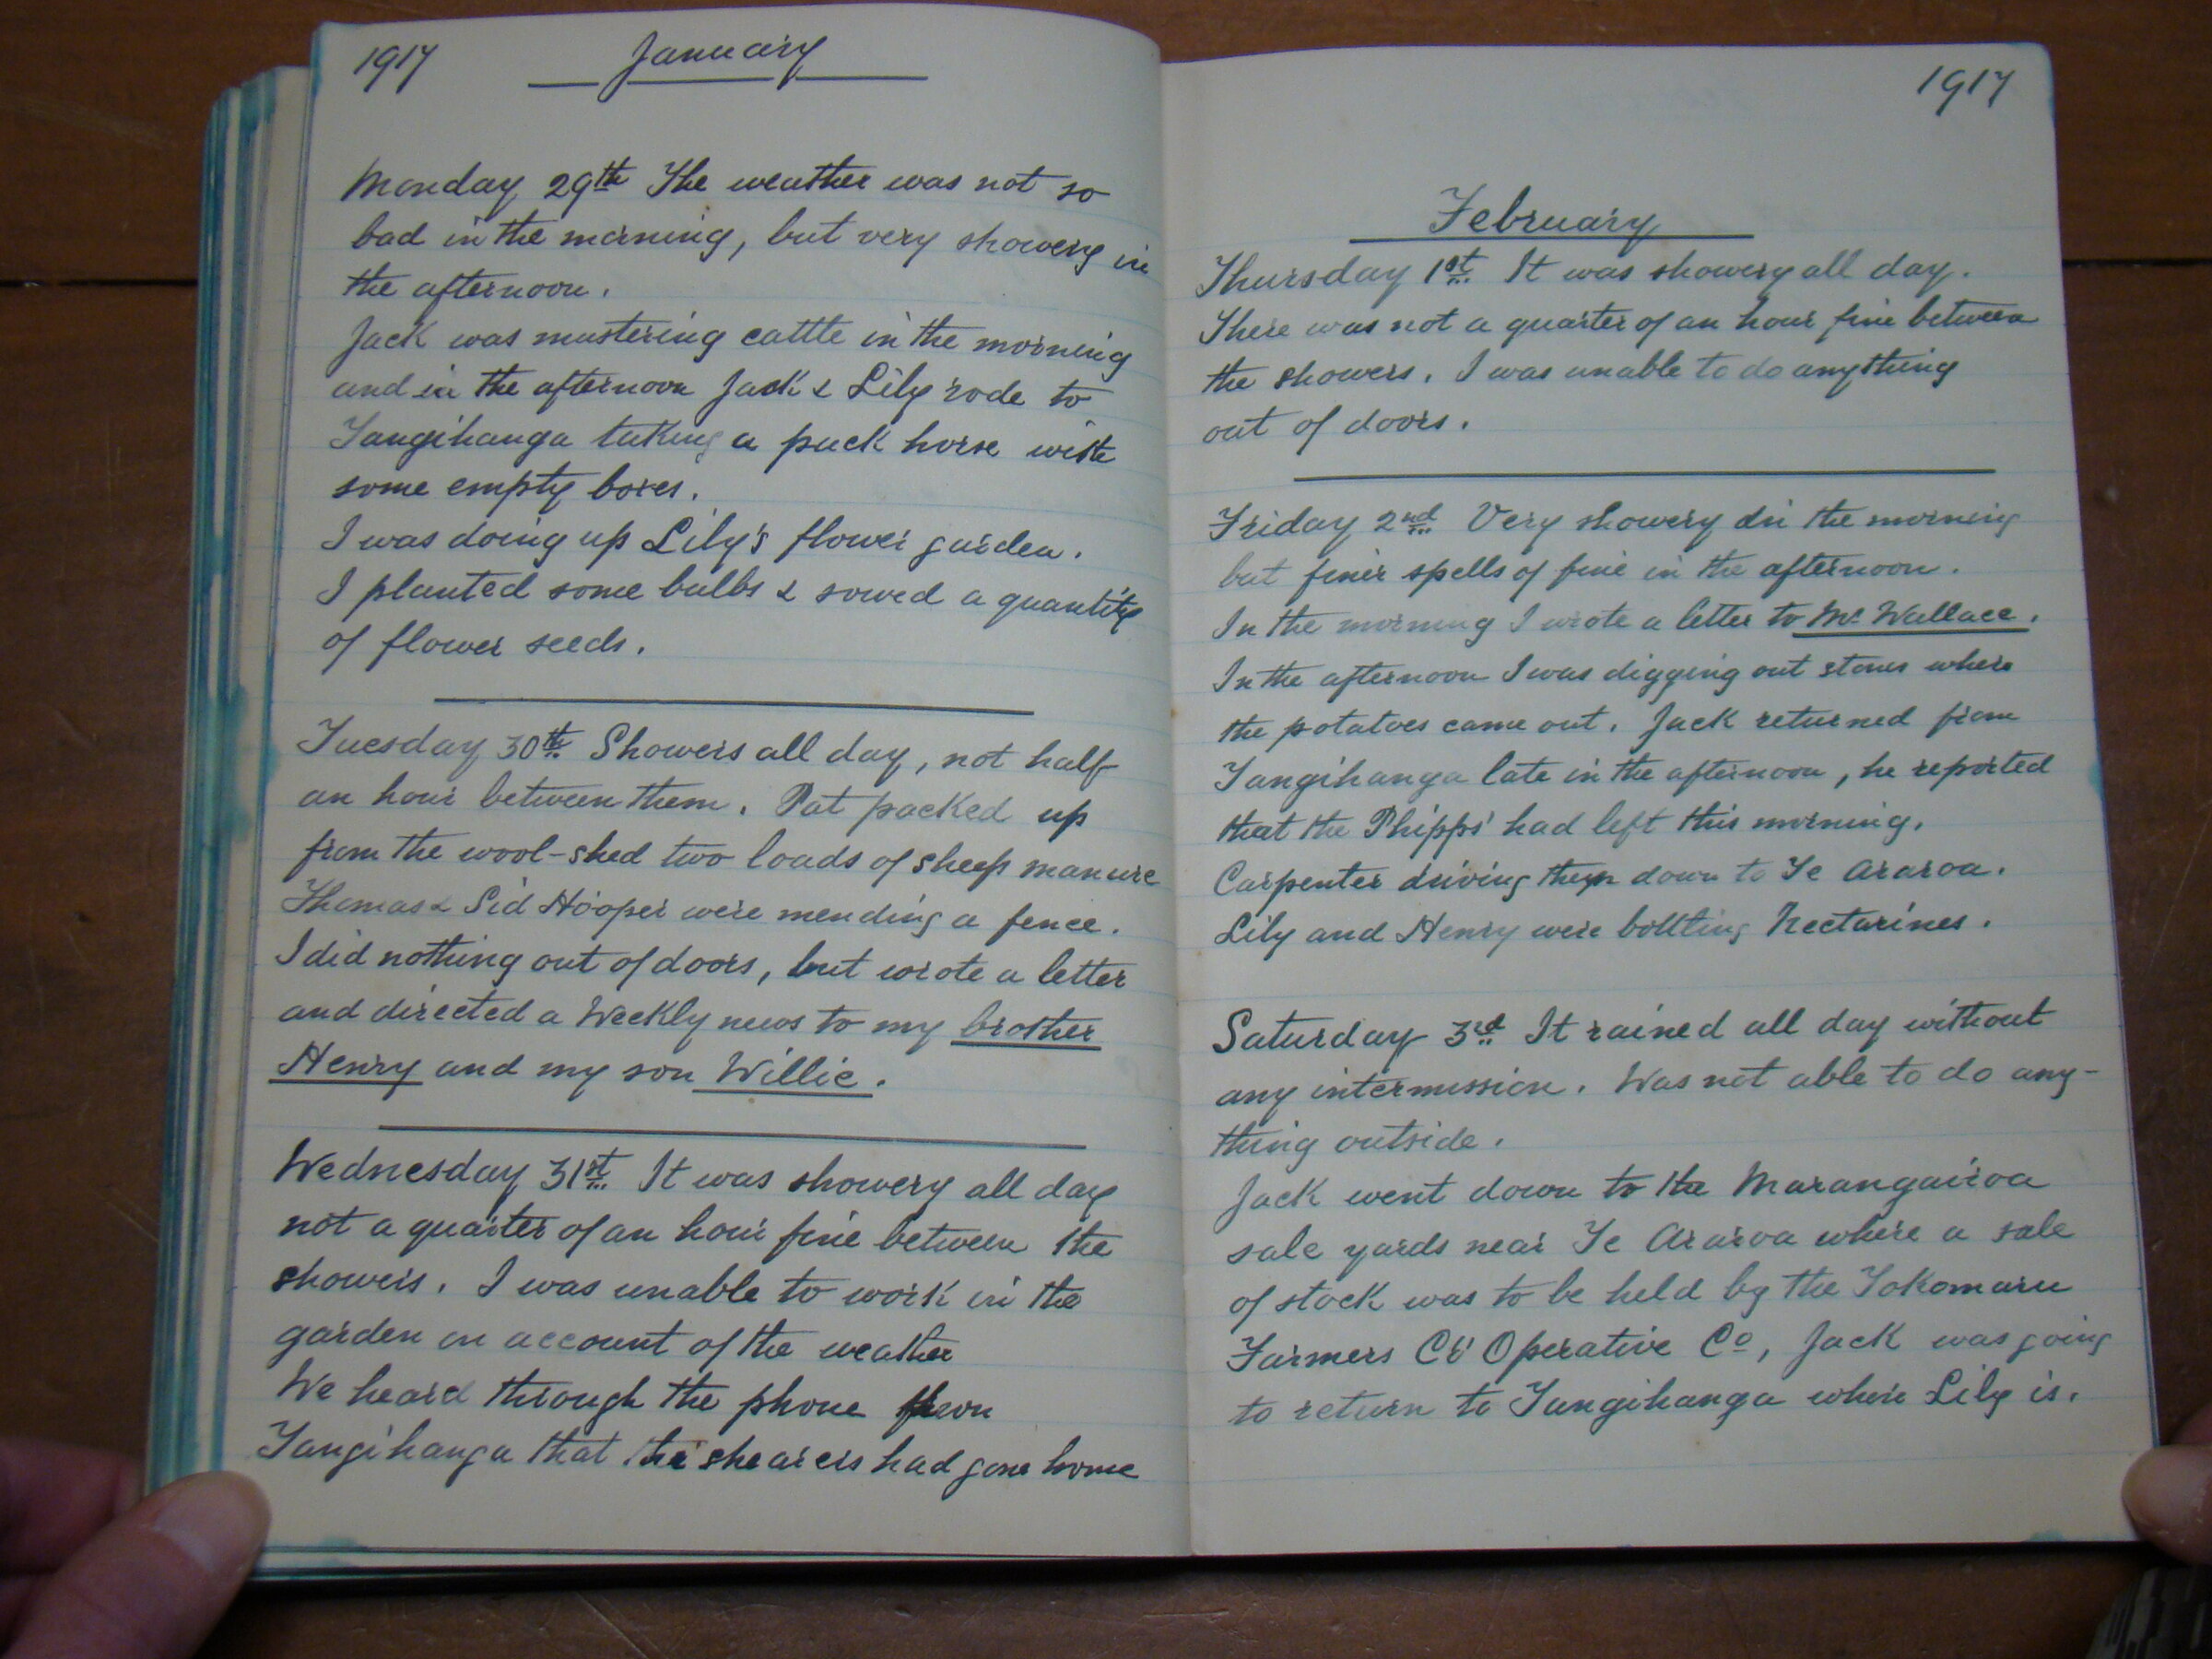 1917 January
Monday 29th The weather was not so
bad in the morning, but very showery in
the afternoon.
Jack was mustering cattle in the morning
and in the afternoon Jack & Lily rode to
Tangihanga taking a pack horse with
some empty boxes.
I was doing up Lily's flower garden.
I planted some bulbs & sowed a quantity
of flower seeds.
Tuesday 30th Showers all day, not half
an hour between them. Pat packed up
from the wool-shed two loads of sheep manure
Thomas & Sid Hooper were mending a fence.
I did nothing out of doors, but wrote a letter
and directed a Weekly news to my brother
Henry and my son Willie.
Wednesday 31st It was showery all day
not a quarter of an hour fine between the
showers. I was unable to work in the
garden on account of the weather
We heard through the phone from
Tangihanga that the shearers had gone home
1917
February
Thursday 1st It was showery all day.
There was not a quarter of an hour fine between
the showers. I was unable to do anything
out of doors.
Friday 2nd Very showery in the morning
but finer spells of fine in the afternoon.
In the morning I wrote a letter to Mr Wallace.
In the afternoon I was digging out stones where
the potatoes came out. Jack returned from
Tangihanga late in the afternoon, he reported
that the Phipps' had left this morning.
Carpenter driving them down to Te Araroa.
Lily and Henry were bottling Nectarines.
Saturday 3rd It rained all day without
any intermission. Was not able to do any-
thing outside.
Jack went down to the Marangairoa
sale yards near Te Araroa where a sale
of stock was to be held by the Tokomaru
Farmers Co Operative Co, Jack was going
to return to Tangihanga where Lily is.